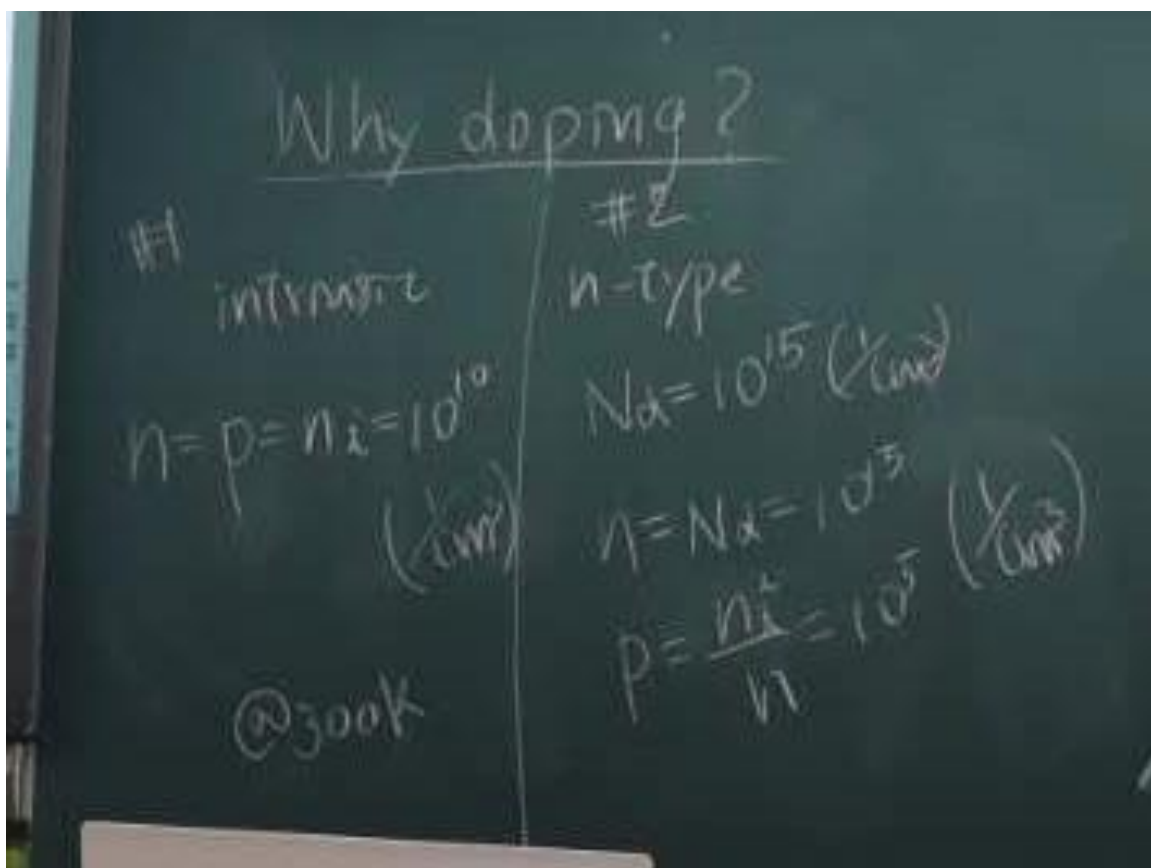 Why doping?
#1
intrinsic
n=p=ni=10¹⁰
(1/cm³)
@300K
#2
n-type
Nd=10¹⁵ (1/cm³)
n=Nd=10¹⁵
p=ni²/n=10⁵ (1/cm³)